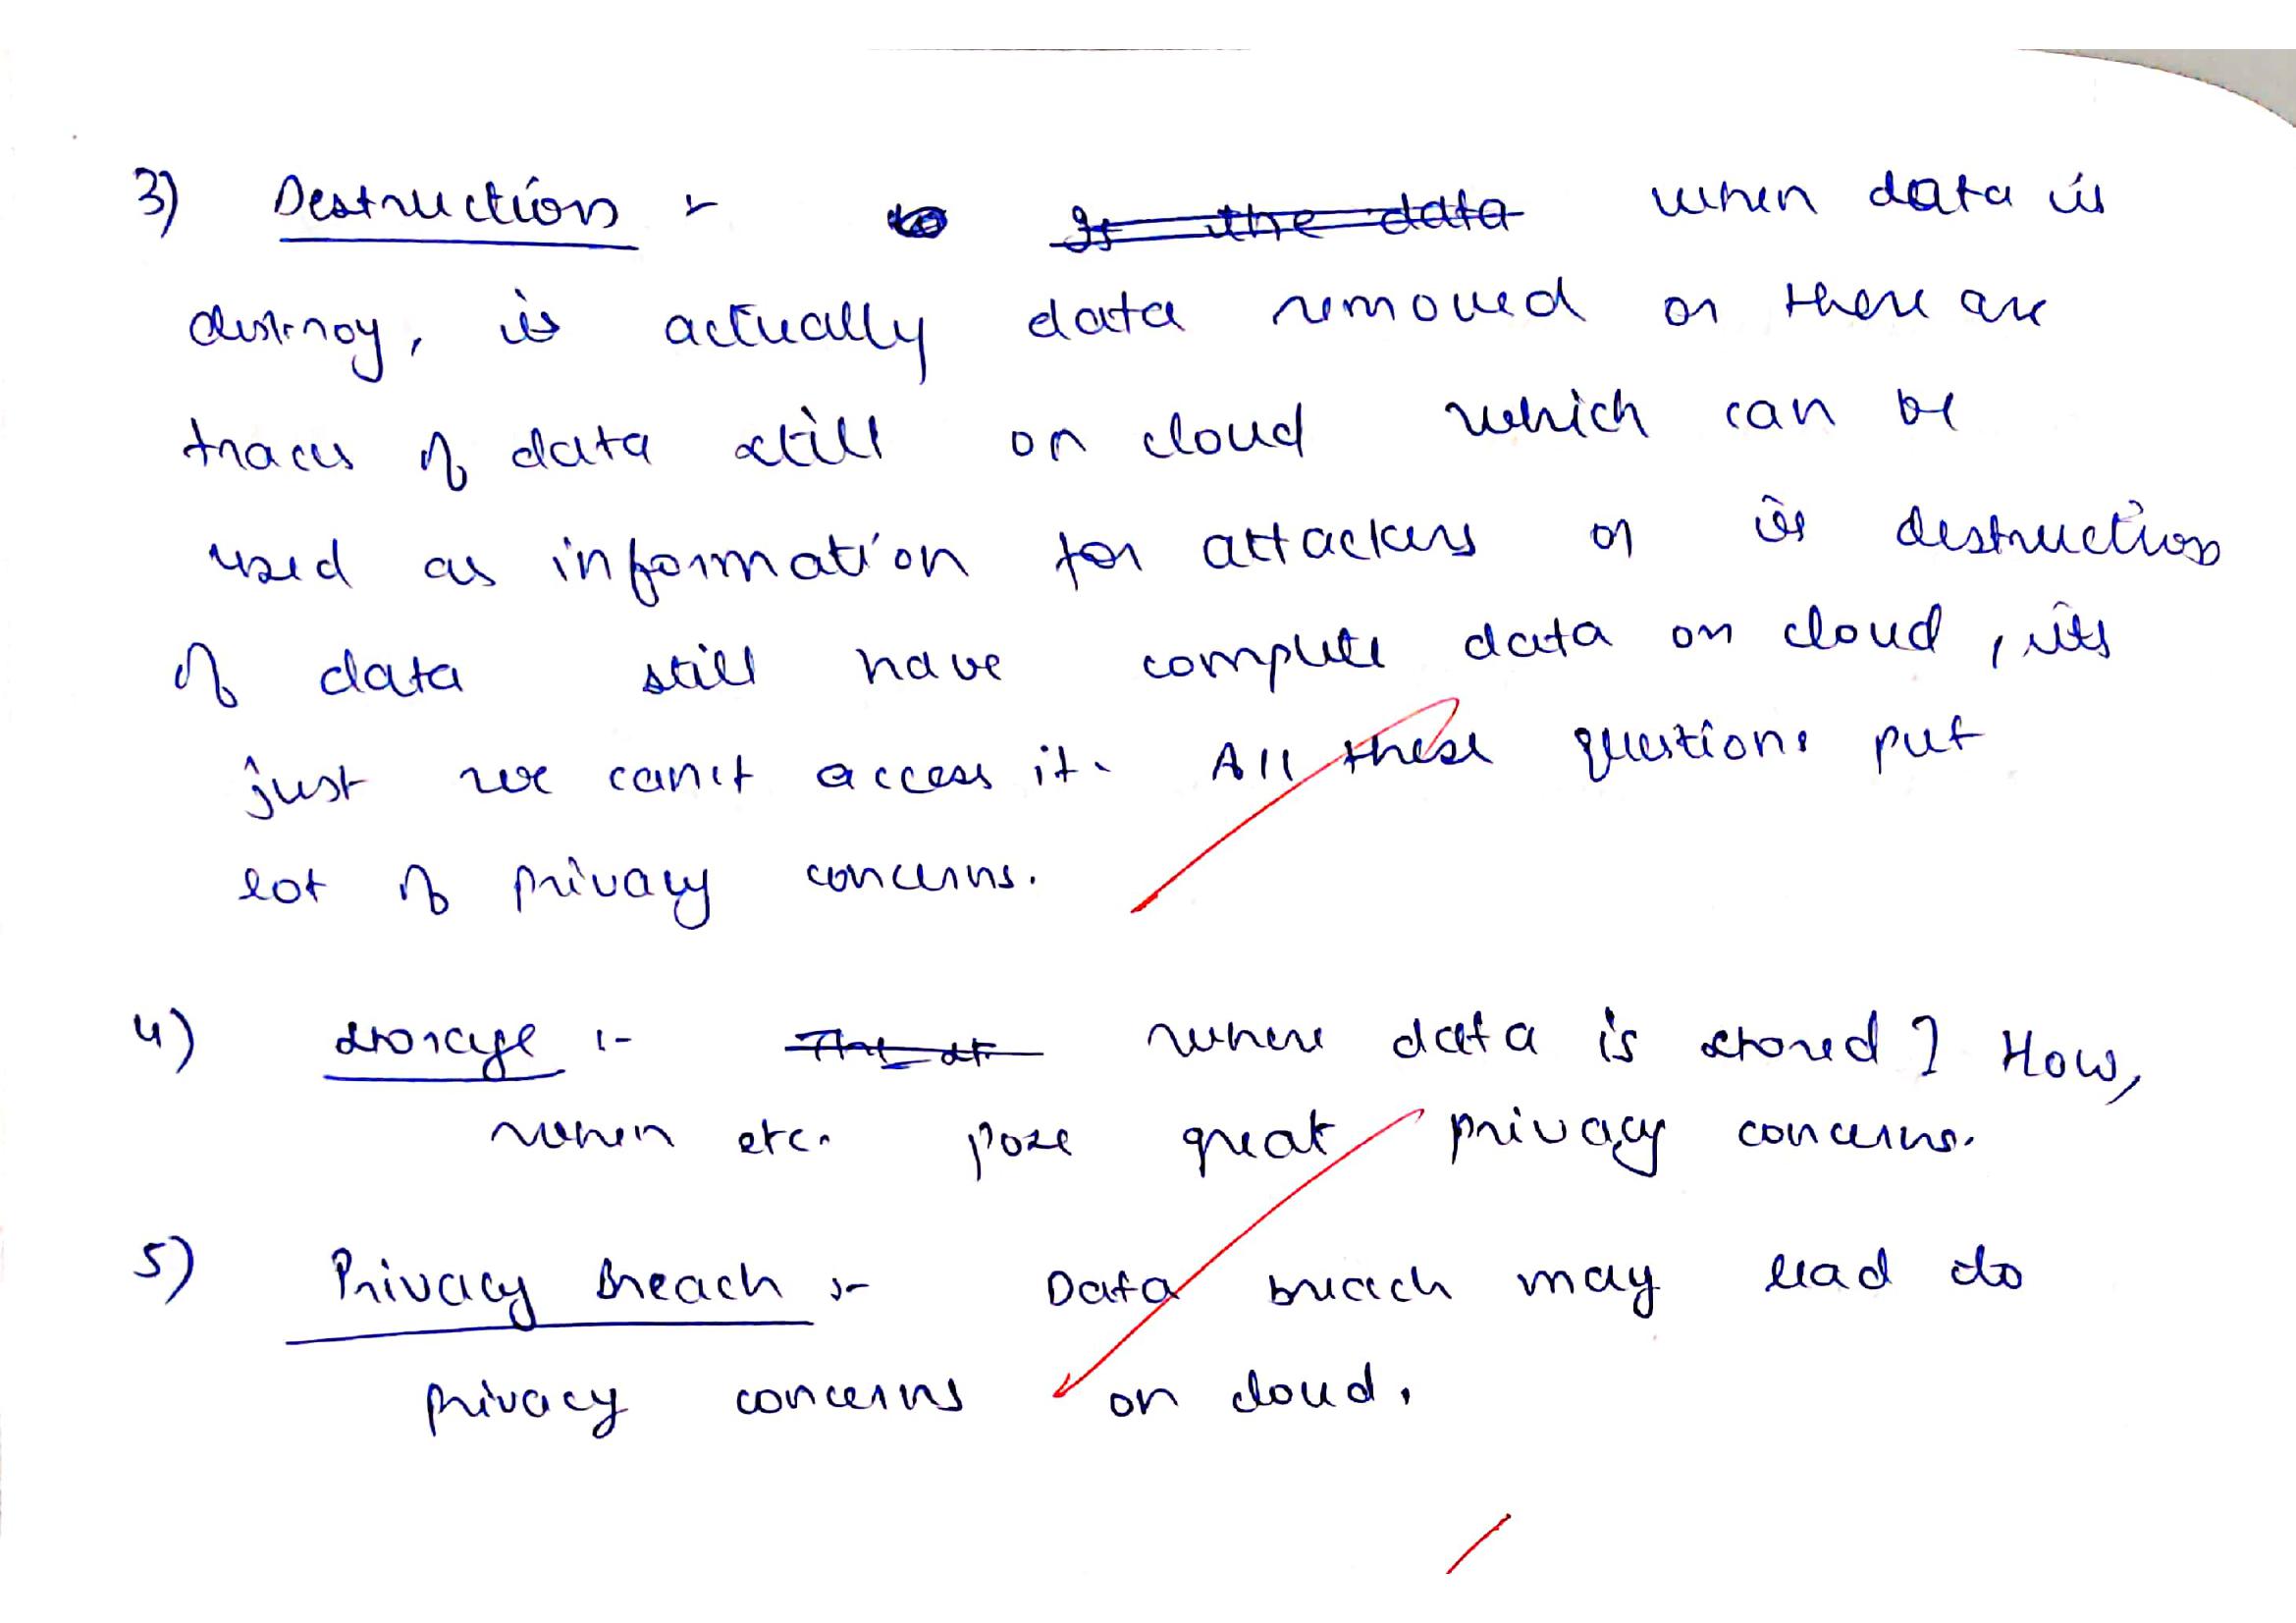 3) Destruction :- when data is
destroy, is actually data removed or there are
traces of data still on cloud which can be
used as information for attackers or is destruction
of data still have complete data on cloud, its
just we can't access it. All these questions put
lot of privacy concerns.
4) Storage :- where data is stored? How,
when etc. pose great privacy concerns.
5) Privacy Breach :- Data breach may lead to
privacy concerns on cloud.